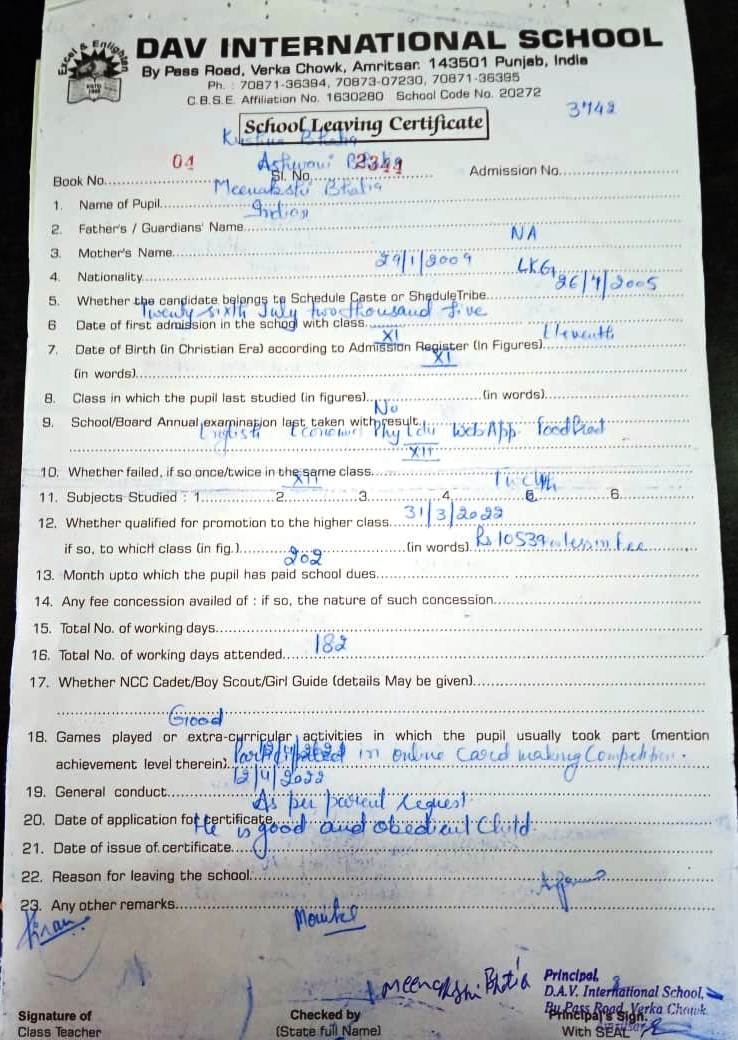 Excel & Enlighten
ESTD
DAV INTERNATIONAL SCHOOL
By Pass Road, Verka Chowk, Amritsar. 143501 Punjab, India
Ph. : 70871-36394, 70873-07230, 70871-36395
C.B.S.E. Affiliation No. 1630280 School Code No. 20272
3742
School Leaving Certificate
Bhatia
04 Ashwani Bhatia 2344
Book No. Sl. No. Admission No.
Meenakshi Bhatia
1. Name of Pupil
Indian
2. Father's / Guardians' Name
NA
3. Mother's Name
29/1/2009 LKG
4. Nationality
26/7/2005
5. Whether the candidate belongs to Schedule Caste or SheduleTribe
Twenty sixth July two thousand five
6 Date of first admission in the school with class
XI Eleventh
7. Date of Birth (in Christian Era) according to Admission Register (In Figures)
XI
(in words)
8. Class in which the pupil last studied (in figures) (in words)
No
9. School/Board Annual examination last taken with result
English Economics Phy Edu Web App Food Prod
XII
10. Whether failed, if so once/twice in the same class
XII Twelfth
11. Subjects Studied : 1 2 3 4 5 6
31/3/2022
12. Whether qualified for promotion to the higher class
Rs 10539 less in fee
if so, to which class (in fig.) (in words)
202
13. Month upto which the pupil has paid school dues
14. Any fee concession availed of : if so, the nature of such concession
15. Total No. of working days
182
16. Total No. of working days attended
17. Whether NCC Cadet/Boy Scout/Girl Guide (details May be given)
Good
18. Games played or extra-curricular activities in which the pupil usually took part (mention
12/4/2022
Participated in online Card making Competition.
achievement level therein)
12/4/2022
19. General conduct
As per parent request
20. Date of application for certificate
He is good and obedient Child.
21. Date of issue of certificate
22. Reason for leaving the school:
23. Any other remarks
Kiran
Meenakshi Bhatia
Principal,
D.A.V. International School,
By Pass Road, Verka Chowk
Amritsar
Signature of
Class Teacher
Checked by
(State full Name)
Principal's Sign.
With SEAL